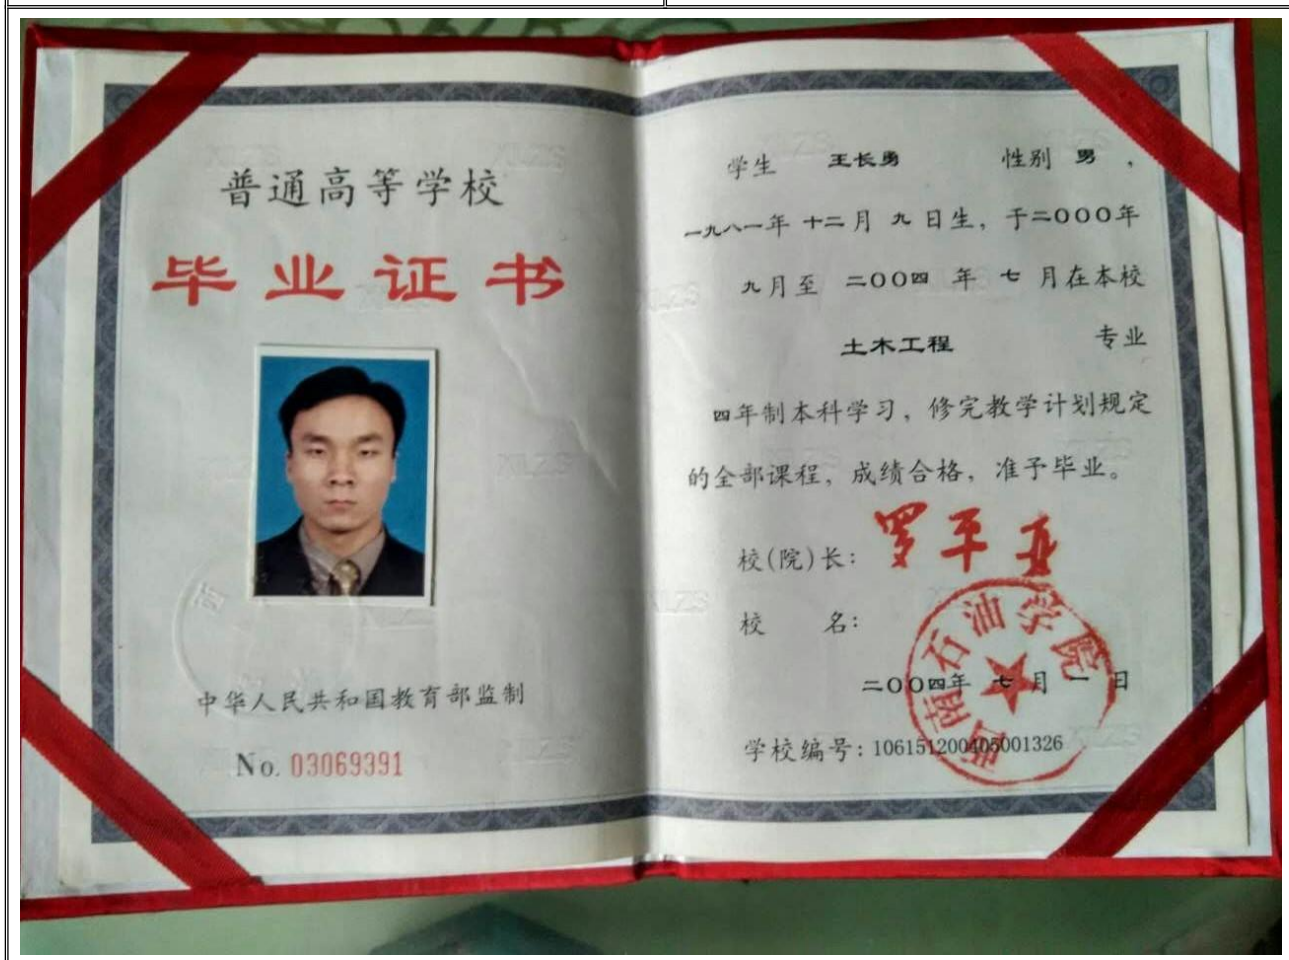 普通高等学校
毕业证书
中华人民共和国教育部监制
No. 03069391
学生 王长勇 性别 男，
一九八一年 十二月 九日生，于二〇〇〇年
九月至 二〇〇四 年 七 月在本校
土木工程 专业
四年制本科学习，修完教学计划规定
的全部课程，成绩合格，准予毕业。
校(院)长：罗平亚
校 名：
西南石油学院
二〇〇四年 七月 一日
学校编号：106151200405001326